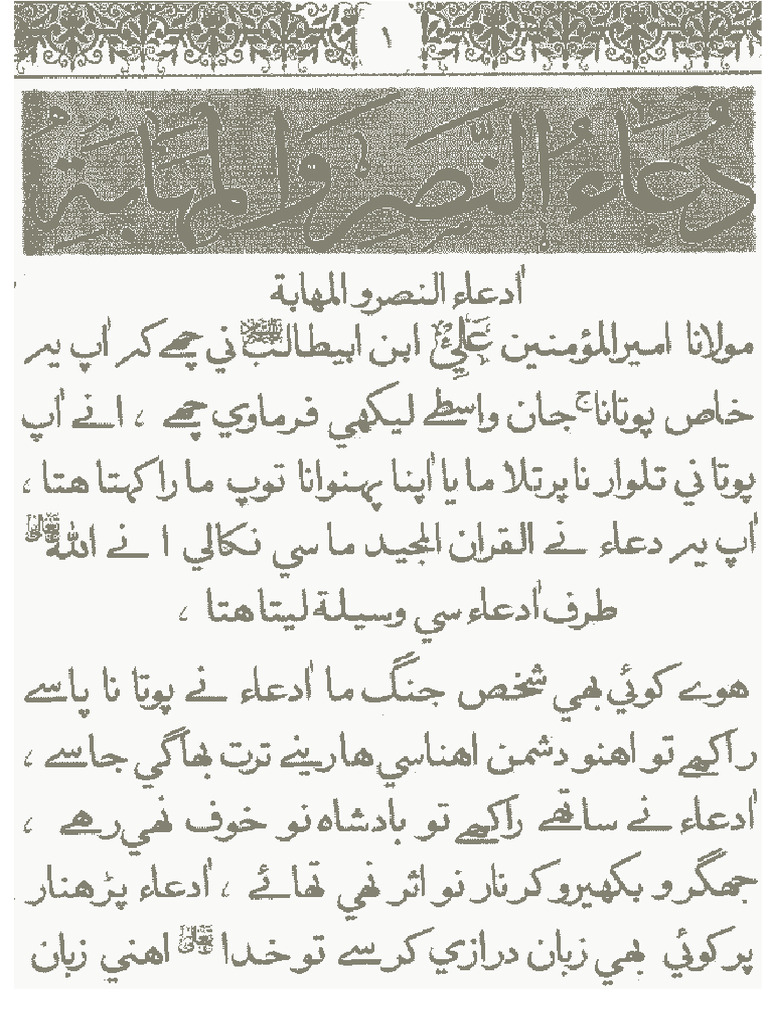 ١
دُعَاءُ النَّصْرِ وَالْمَهَابَةِ
اٰ دعاء النصر و المهابة
مولانا اميرالمؤمنين عَلِيّ ابن ابيطالب ني چھے كہ اٰپ يہ
خاص پوتانا ج جان واسطے ليكھي فرماوي چھے ، انے اٰپ
پوتا ني تلوار نا پرتلا ما يا اٰپنا پہنوانا توپ ما راكہتا هتا ،
اٰپ يہ دعاء نے القران المجيد ما سي نكالي ا نے الله تعالى
طرف اٰدعاء سي وسيلة ليتا هتا ،
هوے كوئي بھي شخص جنگ ما اٰدعاء نے پوتا نا پاسے
راكھے تو اهنو دشمن اهناسي هارينے ترت بھاگي جاسے ،
اٰدعاء نے ساتھے راكھے تو بادشاه نو خوف نھي رهے ،
جھگرو بكھيرو كرنار نو اثر نھي تھائے ، اٰدعاء پڑهنار
پر كوئي بھي زبان درازي كرسے تو خدا تعالى اهني زبان